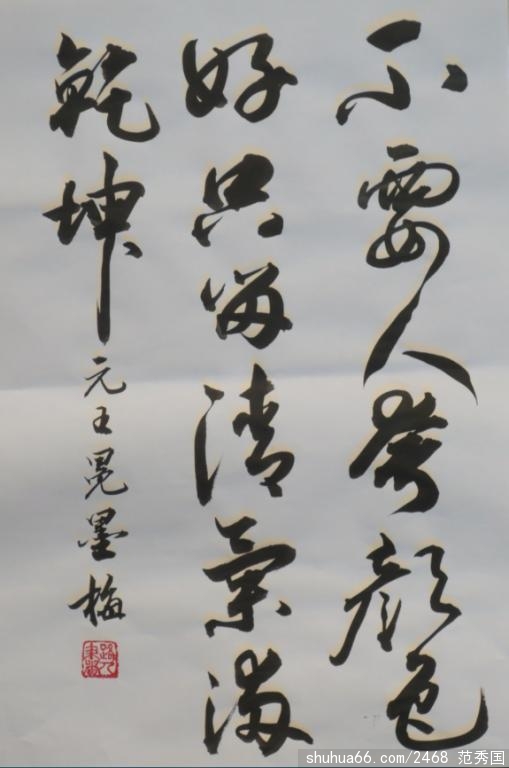 不要人夸顏色
好只留清氣滿
乾坤
元王冕墨梅
shuhua66.com/2468 范秀国